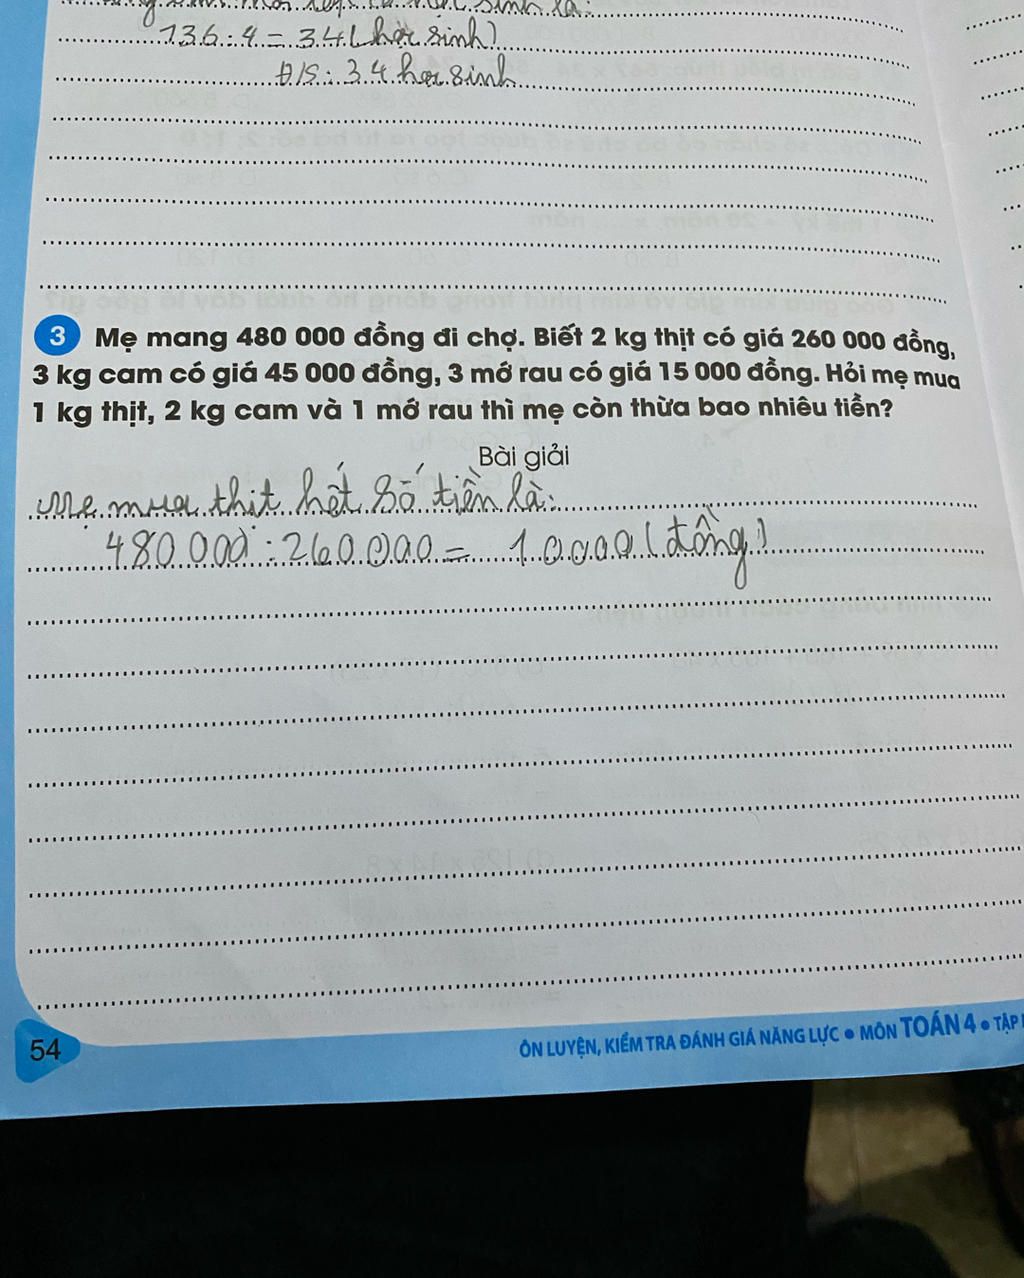 136 : 4 = 34 (học sinh)
Đ/S : 34 học sinh
3 Mẹ mang 480 000 đồng đi chợ. Biết 2 kg thịt có giá 260 000 đồng,
3 kg cam có giá 45 000 đồng, 3 mớ rau có giá 15 000 đồng. Hỏi mẹ mua
1 kg thịt, 2 kg cam và 1 mớ rau thì mẹ còn thừa bao nhiêu tiền?
Bài giải
Mẹ mua thịt hết số tiền là:
480 000 : 260 000 = 10000 (đồng)
54
ÔN LUYỆN, KIỂM TRA ĐÁNH GIÁ NĂNG LỰC • MÔN TOÁN 4 • TẬP